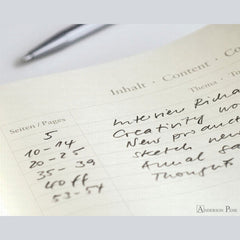 Inhalt · Content · Co
Thema · To
Seiten / Pages
5 Interview Richa
10-14 Creativity wo
20-25 New product
35-39 sketch new
40ff Annual Sa
53-54 Thoughts
ANDERSON PENS